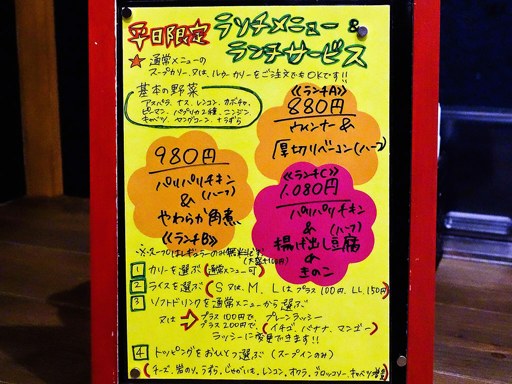 平日限定 ランチメニュー &
ランチサービス
★ 通常メニューの
スープカリー、又は、ルゥーカリーをご注文でもOKです!!
基本の野菜
アスパラ、ナス、レンコン、カボチャ、
ピーマン、パプリカ2種、ニンジン
キャベツ、ヤングコーン、うずら
《ランチA》
880円
ウィンナー &
厚切りベーコン(ハーフ)
980円
パリパリチキン
& (ハーフ)
やわらか角煮
《ランチB》
《ランチC》
1,080円
パリパリチキン
& (ハーフ)
揚げ出し豆腐
&
きのこ
※スープはレギュラーのみ無料
1 カリーを選ぶ (通常メニュー可)
2 ライスを選ぶ (S 又は、M、L はプラス100円、LL 150円)
3 ソフトドリンクを通常メニューから選ぶ
又は → プラス100円で、プレーンラッシー
プラス200円で、(イチゴ、バナナ、マンゴー)
ラッシーに変更できます!!
4 トッピングをおひとつ選ぶ (スープインのみ)
(チーズ、岩のり、うずら、じゃがいも、レンコン、オクラ、ブロッコリー、キャベツ